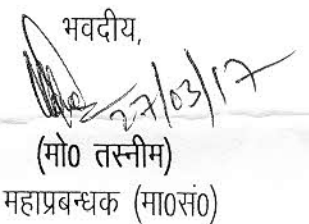 भवदीय,
27/03/17
(मो0 तस्नीम)
महाप्रबन्धक (मा0सं0)